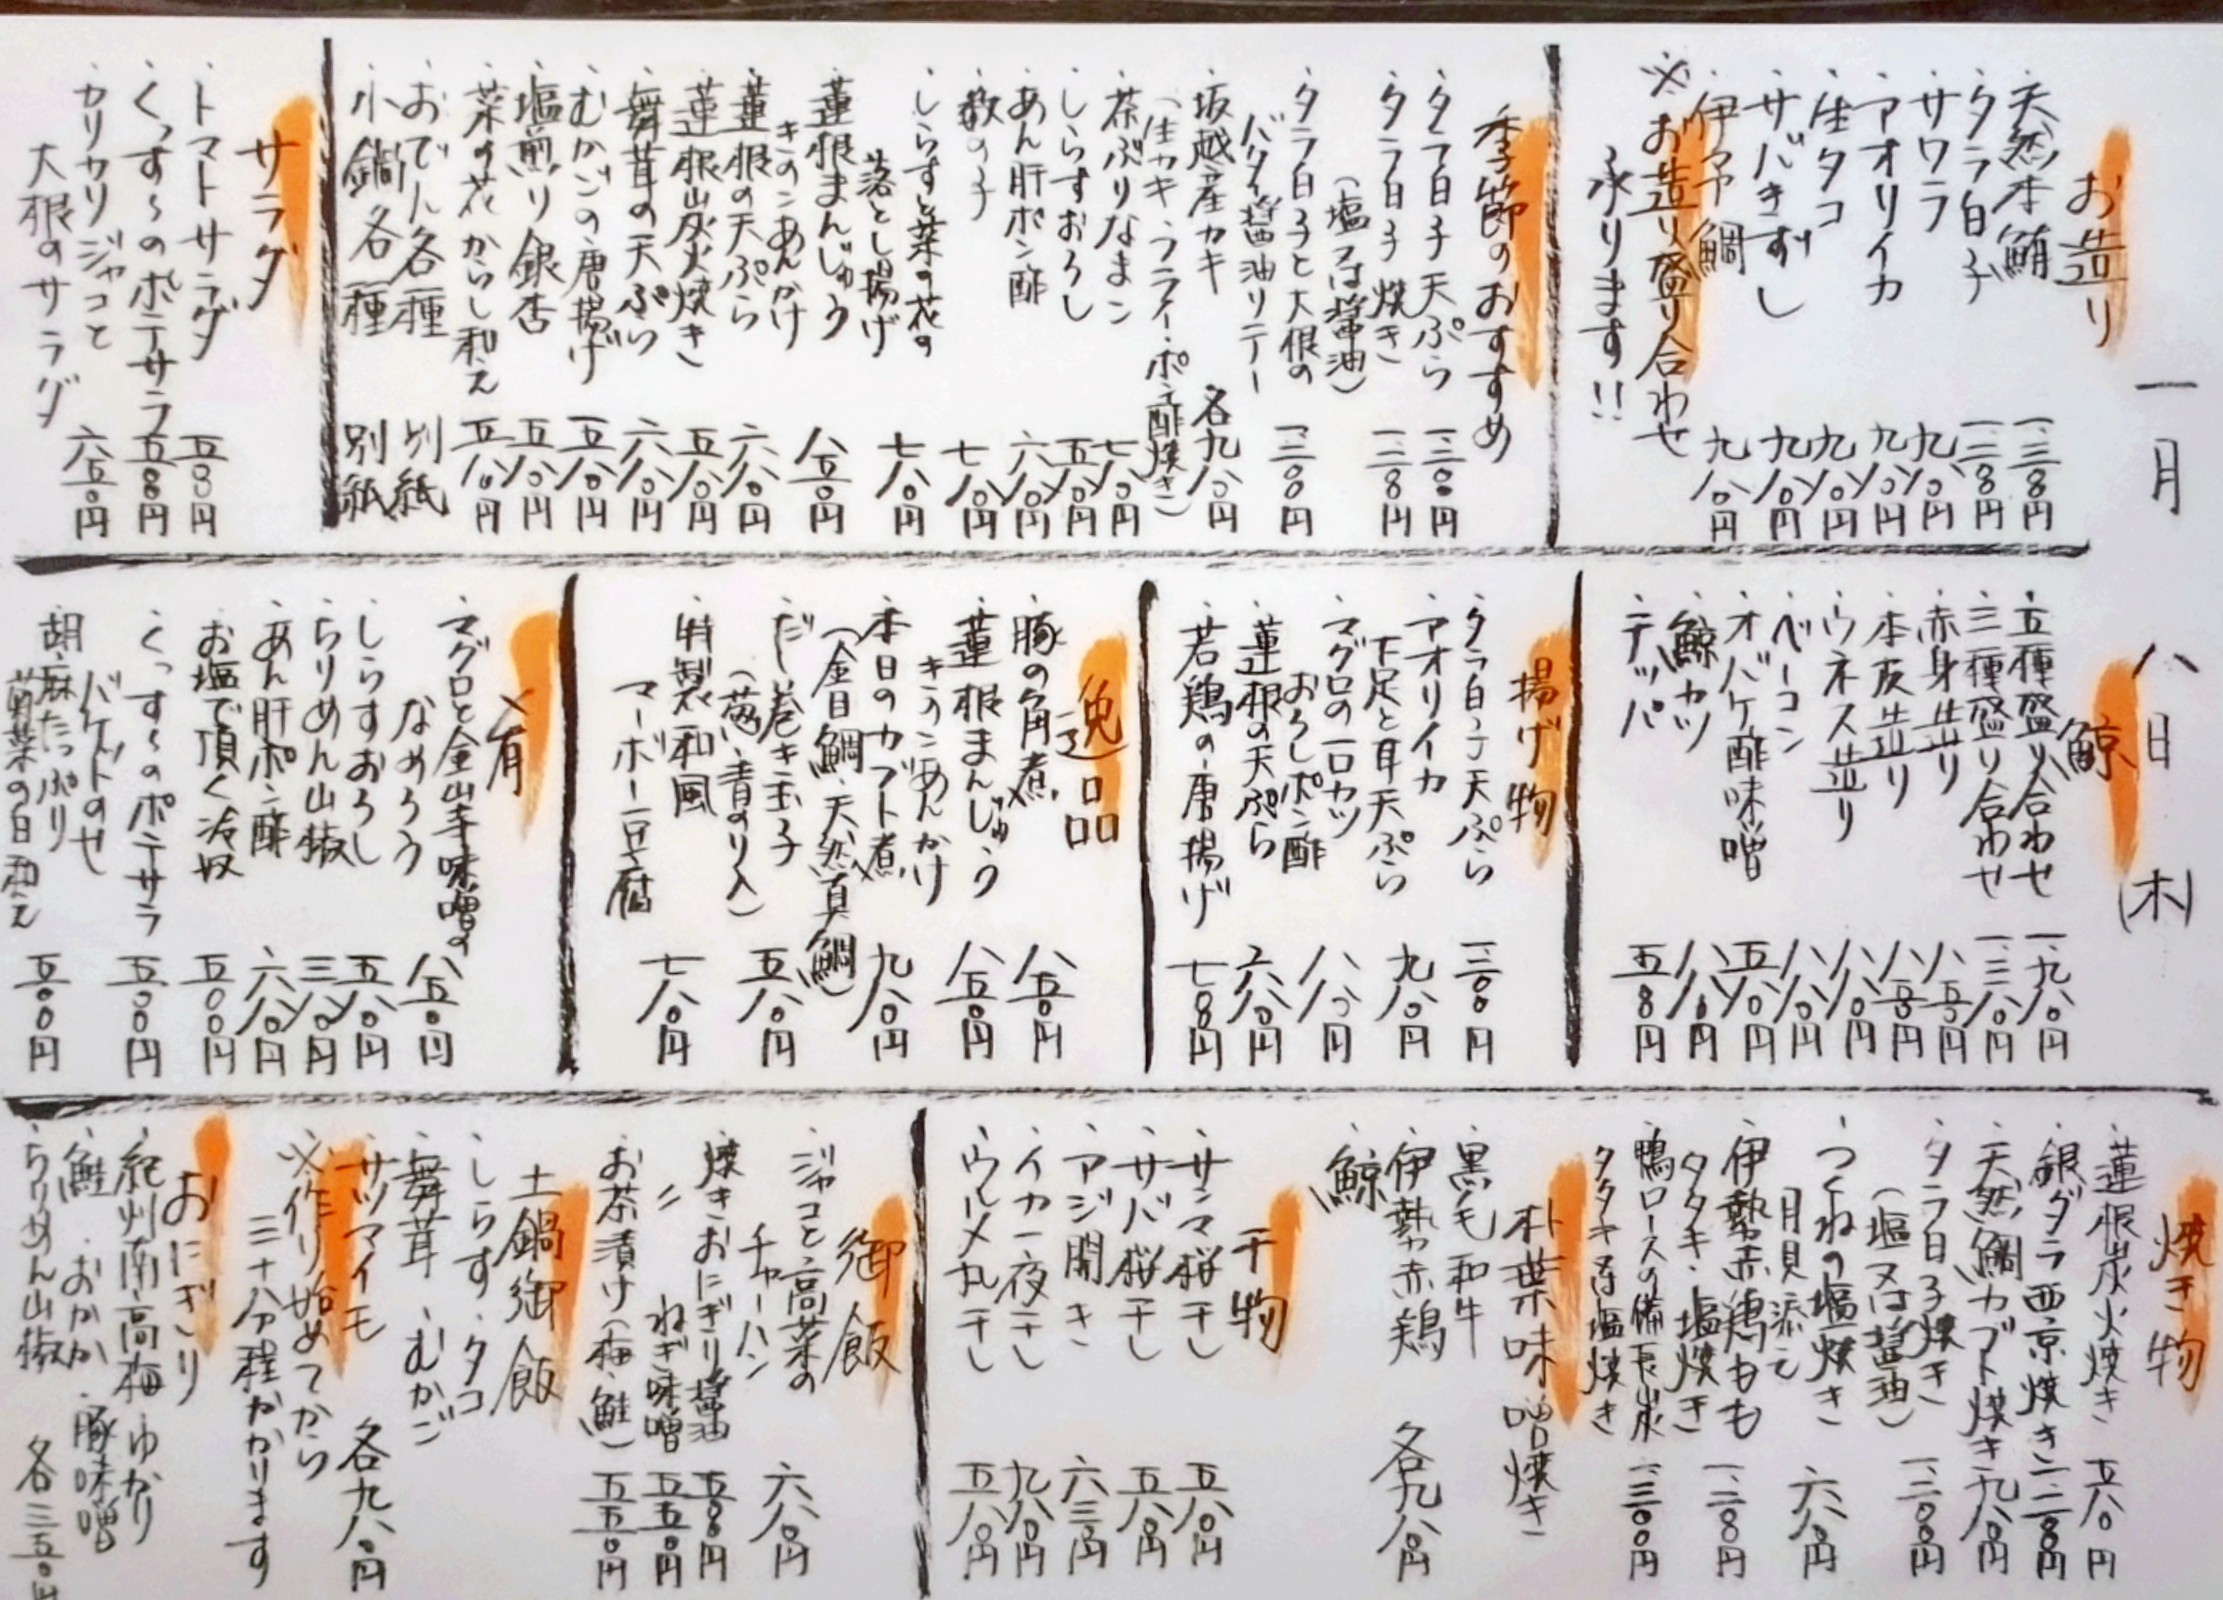 一月八日(木)
お造り
・天然本鮪 一、三〇〇円
・タラ白子 一、三〇〇円
・サワラ 九八〇円
・アオリイカ 九八〇円
・生タコ 九八〇円
・サバきずし 九八〇円
・伊予鯛 九八〇円
※お造り盛り合わせ
承ります!!
季節のおすすめ
・タラ白子天ぷら 一、三〇〇円
・タラ白子焼き 一、三〇〇円
(塩又は醤油)
・タラ白子と大根の
バター醤油ソテー 一、三〇〇円
・坂越産カキ 各九八〇円
(生カキ・フライ・ポン酢・焼き)
・茶ぶりなまこ 七八〇円
・しらすおろし 五八〇円
・あん肝ポン酢 六八〇円
・数の子 七八〇円
・しらすと菜の花の
落とし揚げ 七八〇円
・蓮根まんじゅう
きのこあんかけ 八五〇円
・蓮根の天ぷら 六八〇円
・蓮根炭火焼き 五八〇円
・舞茸の天ぷら 六八〇円
・むかごの唐揚げ 五八〇円
・塩煎り銀杏 五八〇円
・菜の花からし和え 五八〇円
・おでん各種 別紙
・小鍋各種 別紙
サラダ
・トマトサラダ 五〇〇円
・くっす〜のポテサラ 五〇〇円
・カリカリジャコと
大根のサラダ 六五〇円
鯨
・五種盛り合わせ 一、九八〇円
・三種盛り合わせ 一、三八〇円
・赤身造り 八五〇円
・本皮造り 八〇〇円
・ウネス造り 八八〇円
・ベーコン 八八〇円
・オバケ酢味噌 五八〇円
・鯨カツ 八八〇円
・テッパ 五八〇円
揚げ物
・タラ白子天ぷら 一、三〇〇円
・アオリイカ
下足と耳天ぷら 九八〇円
・マグロの一口カツ
おろしポン酢 八八〇円
・蓮根の天ぷら 六八〇円
・若鶏の唐揚げ 七八〇円
逸品
・豚の角煮 八五〇円
・蓮根まんじゅう
きのこあんかけ 八五〇円
・本日のカブト煮 九八〇円
(金目鯛・天然真鯛)
・だし巻き玉子 五八〇円
(葱・青のり入)
・特製和風
マーボー豆腐 七八〇円
肴
・マグロと金山寺味噌の
なめろう 八五〇円
・しらすおろし 五八〇円
・ちりめん山椒 三八〇円
・あん肝ポン酢 六八〇円
・お塩で頂く冷奴 五〇〇円
・くっす〜のポテサラ
バケットのせ 五〇〇円
・胡麻たっぷり
菊菜の白和え 五〇〇円
焼き物
・蓮根炭火焼き 五八〇円
・銀ダラ西京焼き 一、二〇〇円
・天然鯛カブト焼き 九八〇円
・タラ白子焼き 一、三〇〇円
(塩又は醤油)
・つくねの塩焼き
月見添え 六八〇円
・伊勢赤鶏もも
タタキ・塩焼き 一、三〇〇円
・鴨ロースの備長炭
タタキ又は塩焼き 一、三〇〇円
朴葉味噌焼き
・黒毛和牛
・伊勢赤鶏 各九八〇円
・鯨
干物
・サンマ桜干し 五八〇円
・サバ桜干し 五八〇円
・アジ開き 六三〇円
・イカ一夜干し 九八〇円
・ウルメ丸干し 五八〇円
御飯
・ジャコと高菜の
チャーハン 六八〇円
・焼きおにぎり醤油 五〇〇円
〃 ねぎ味噌 五五〇円
・お茶漬け(梅・鮭) 五五〇円
土鍋御飯
・しらす・タコ
・舞茸・むかご
・サツマイモ 各九八〇円
※作り始めてから
三十分程かかります
おにぎり
・紀州南高梅・ゆかり
・鮭・おかか・豚味噌
・ちりめん山椒 各三五〇円